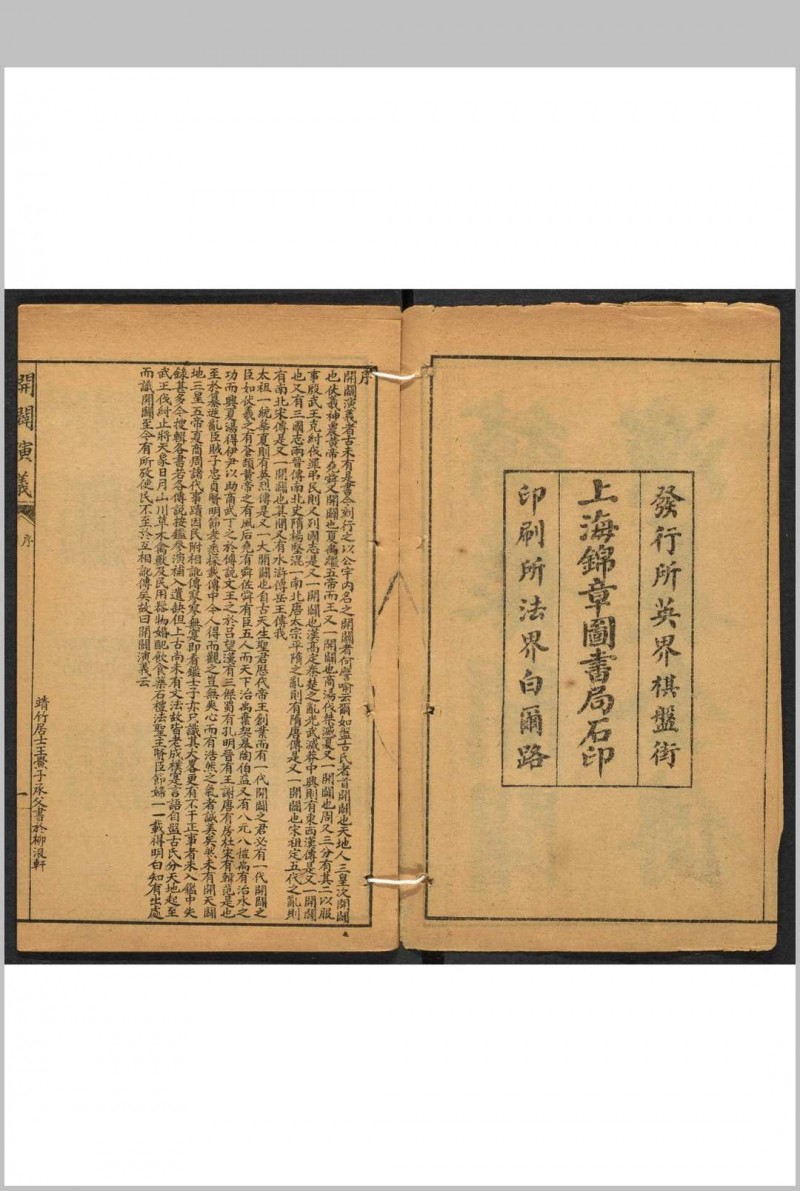 發行所英界棋盤街
上海錦章圖書局石印
印刷所法界白爾路
序
開闢演義者古未有是書今刻行之以公宇內名之開闢者何譬喻云爾如盤古氏者首開闢也天地人三皇次開闢
也伏羲神農黃帝堯舜又開闢也夏禹繼五帝而王又一開闢也商湯伐桀滅夏又一開闢也周又三分有其二以服
事殷武王克紂伐罪弔民則又列國志是又一開闢也漢高定秦楚之亂光武滅莽中興則有東西漢傳是又一開闢
也又有三國志兩晉傳南北史隋楊堅混一南北唐太宗平隋之亂則有隋唐傳是又一開闢也宋祖定五代之亂則
有南北宋傳是又一開闢也其間又有水滸傳岳王傳我
太祖一統華夏則有英烈傳是又一大開闢也自古天生聖君歷代帝王創業而有一代開闢之君必有一代開闢之
臣如伏羲之有蒼頡黃帝之有風后堯有舜佐舜有臣五人而天下治禹皋契夔陶伯益又有八元八愷禹有治水之
功而興夏湯得伊尹以助商武丁之於傅說文王之於呂望漢有三傑蜀有孔明晉有王謝唐有房杜宋有韓范是也
至於篡逆亂臣賊子忠貞賢明節孝悉採載傳中令人得而觀之豈無爽心而有浩然之氣者誠美矣然未有開天闢
地三皇五帝夏商周諸代事蹟因民附相訛傳寥寥無實即看鑑士子亦只識其大畧更有不干正事者未入鑑中失
錄甚多今搜輯各書若各傳說按鑑參演補入遺缺但上古尚未有文法故皆老成樸實言語自盤古氏分天地起至
武王伐紂止將天象日月山川草木禽獸及民用器物婚配飲食藥石禮法聖主賢臣節婦一一載得明白知有出處
而識開闢至今有所攷使民不至於互相訛傳矣故曰開闢演義云
靖竹居士王黌子承父書於柳浪軒
開闢演義
序
一